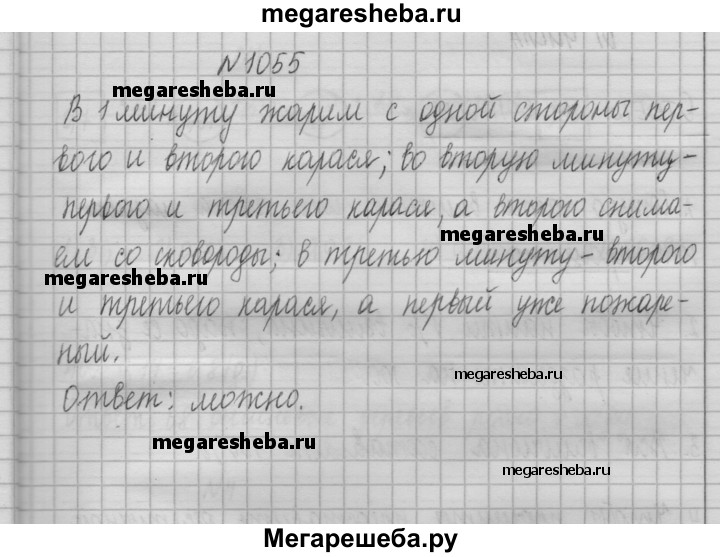 megaresheba.ru
N 1055
megaresheba.ru
В 1 минуту жарим с одной стороны пер-
вого и второго карася; во вторую минуту -
первого и третьего карася, а второго снима-
megaresheba.ru
ем со сковороды; в третью минуту - второго
megaresheba.ru
и третьего карася, а первый уже пожаре-
ный.
megaresheba.ru
Ответ: можно.
megaresheba.ru
megaresheba.ru
Мегарешеба.ру